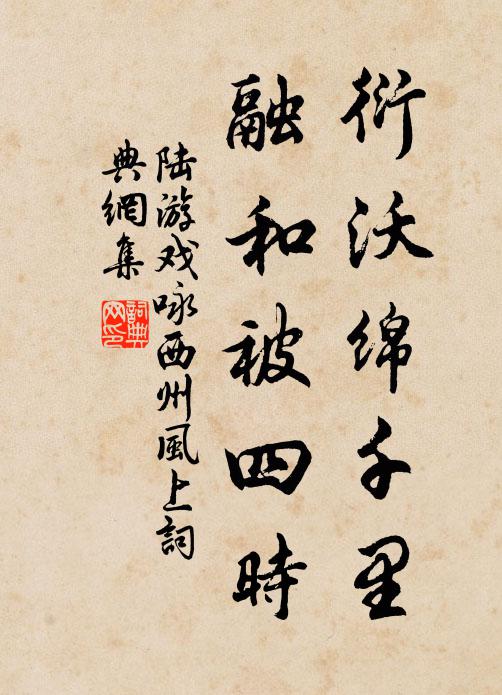 衍沃绵千里
融和被四時
陆游戏咏西州風土詞
典網集
詞典网印